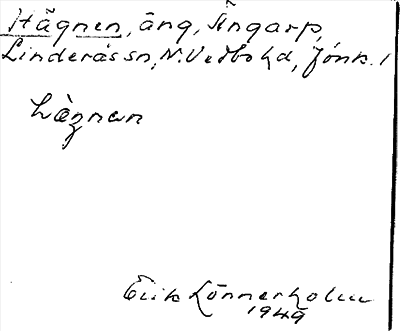 Hägnen, äng, Ängarp,
Linderås sn, N. Vedbo hd, Jönk. l
hàgnan
Erik Lönnerholm
1949